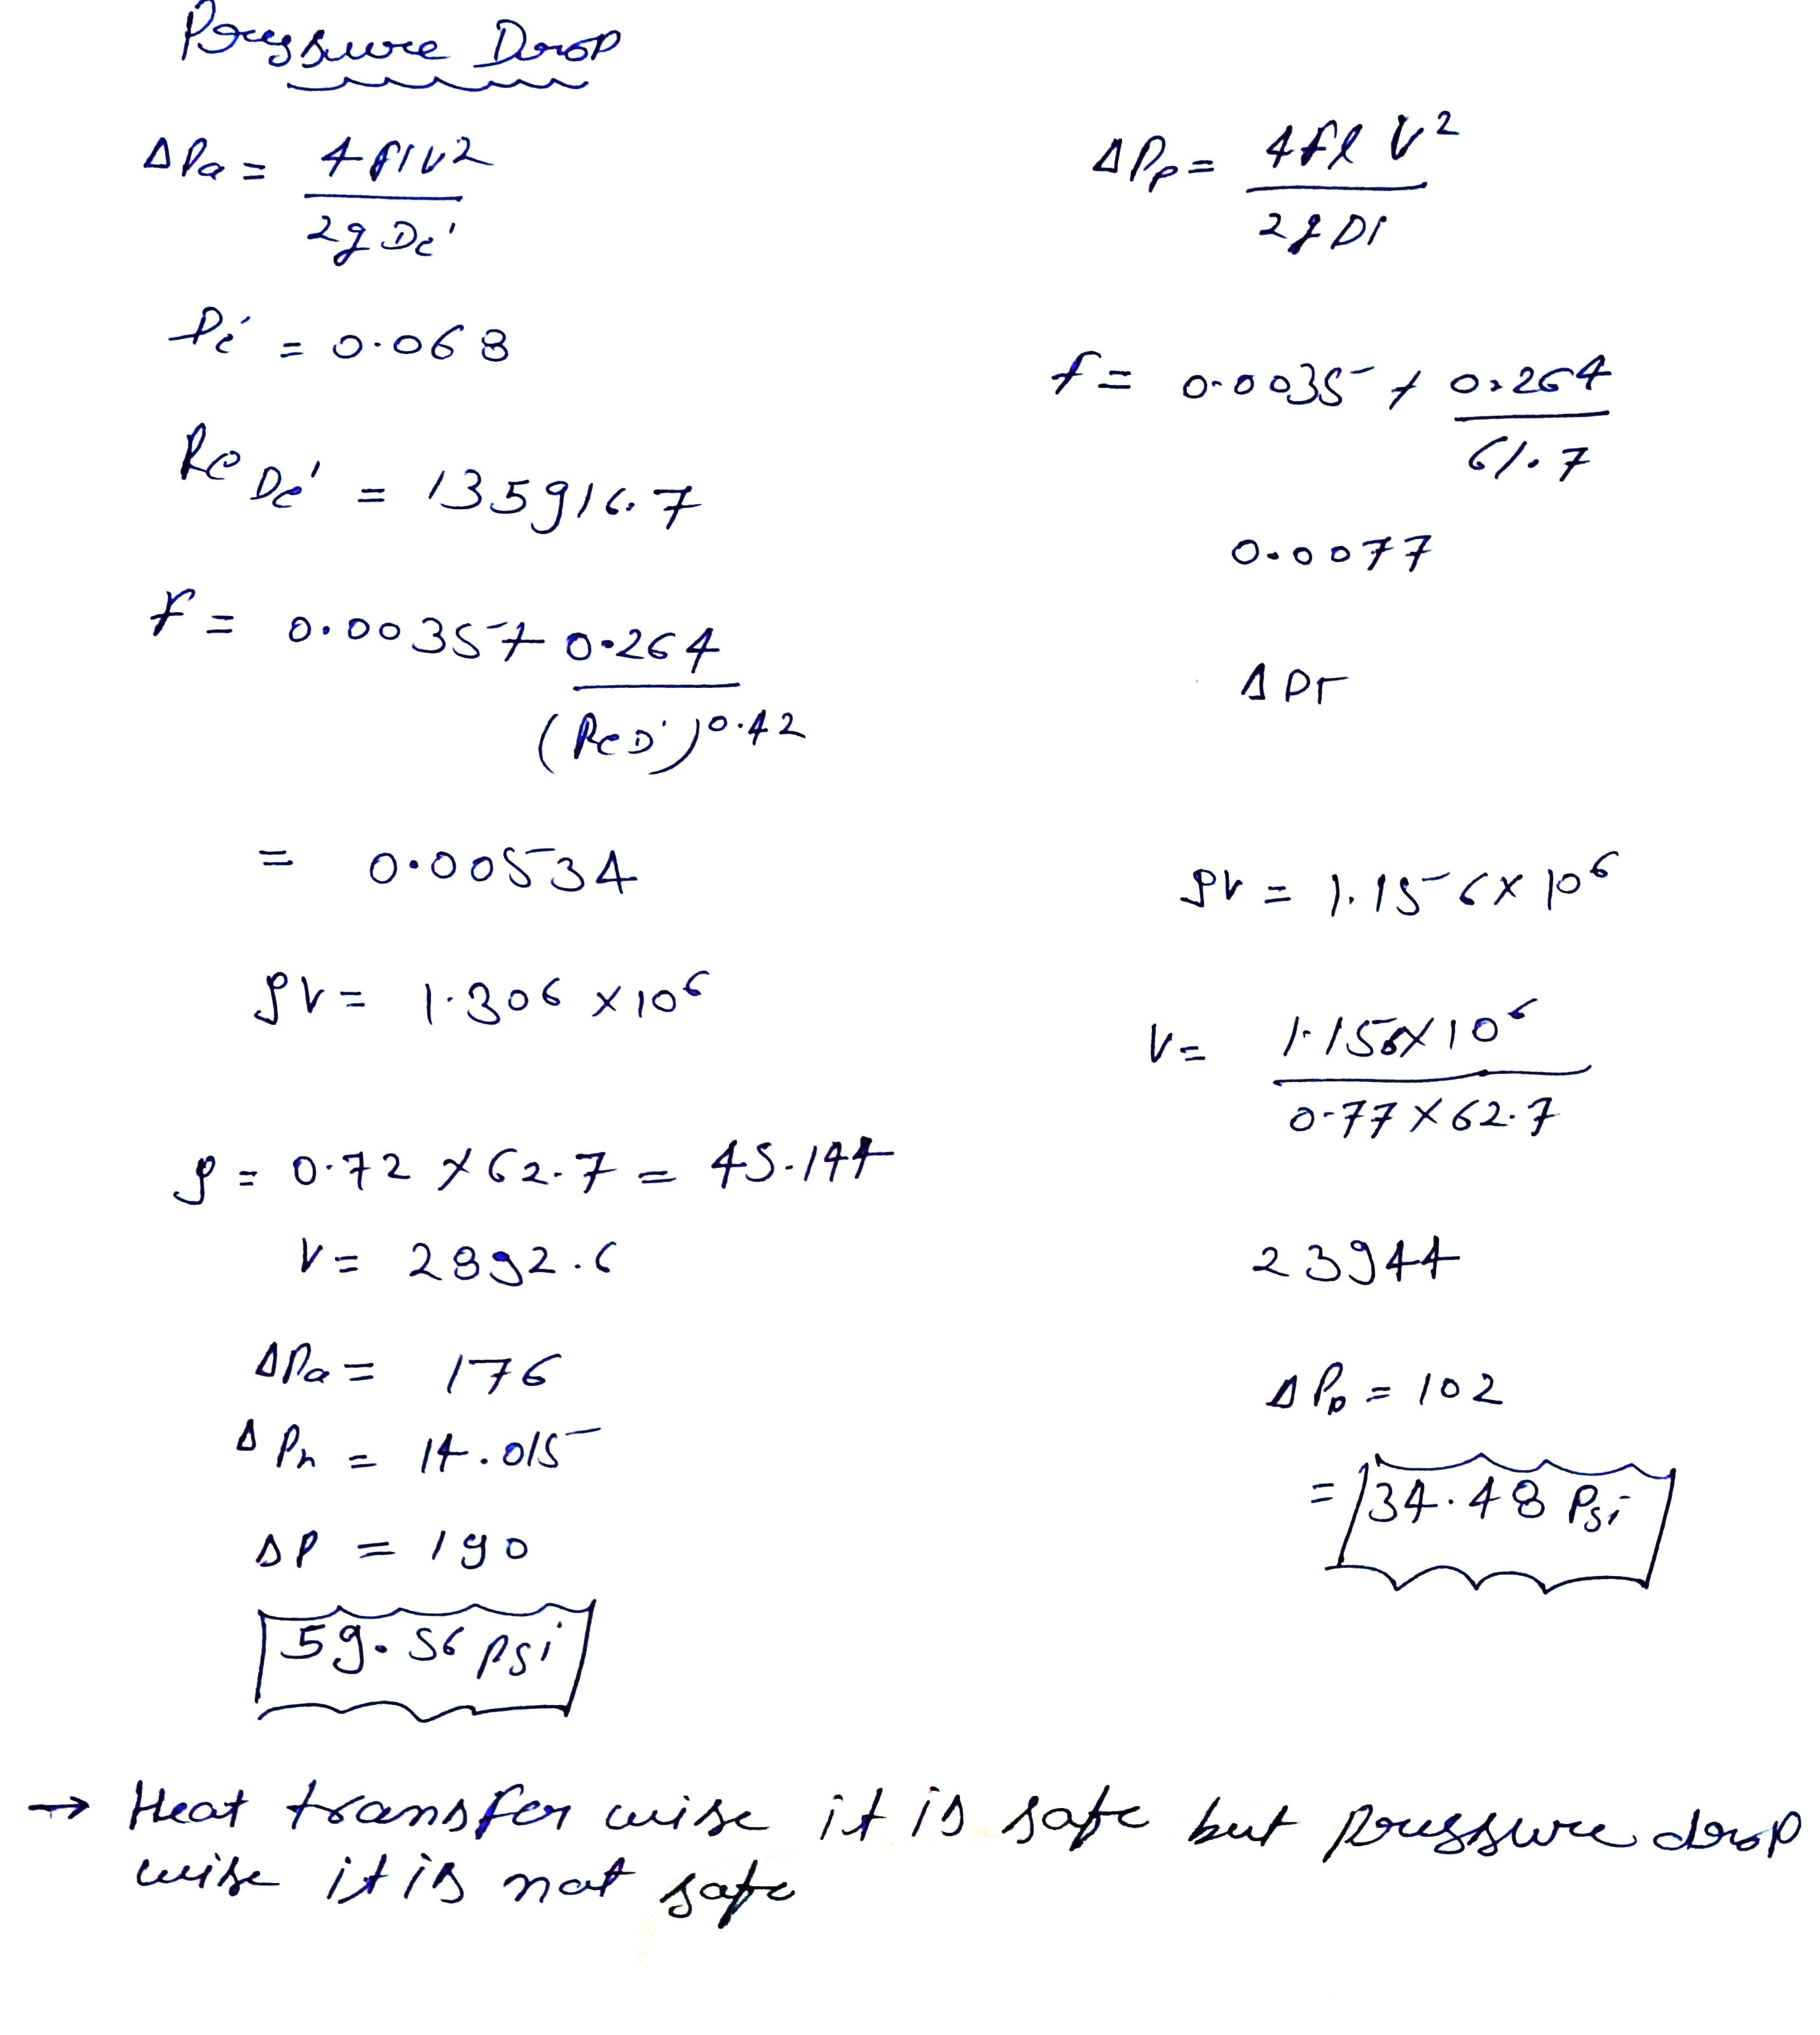 Pressure Drop
ΔPa = 4flV²
2g De'
De' = 0.063
Re De' = 135916.7
f = 0.0035 + 0.264
(ReD')0.42
= 0.00534
ρV = 1.306 × 10⁶
ρ = 0.72 × 62.7 = 45.144
V = 2892.6
ΔPa = 176
ΔPn = 14.015
ΔP = 190
59.56 psi
ΔPp = 4fl V²
2g Di
f = 0.0035 + 0.264
61.7
0.0077
ΔPr
ρV = 1.156 × 10⁶
V = 1.156×10⁶
0.77 × 62.7
23944
ΔPp = 102
= 34.48 Psi
→ Heat transfer wise it is safe but pressure drop
wise it is not safe